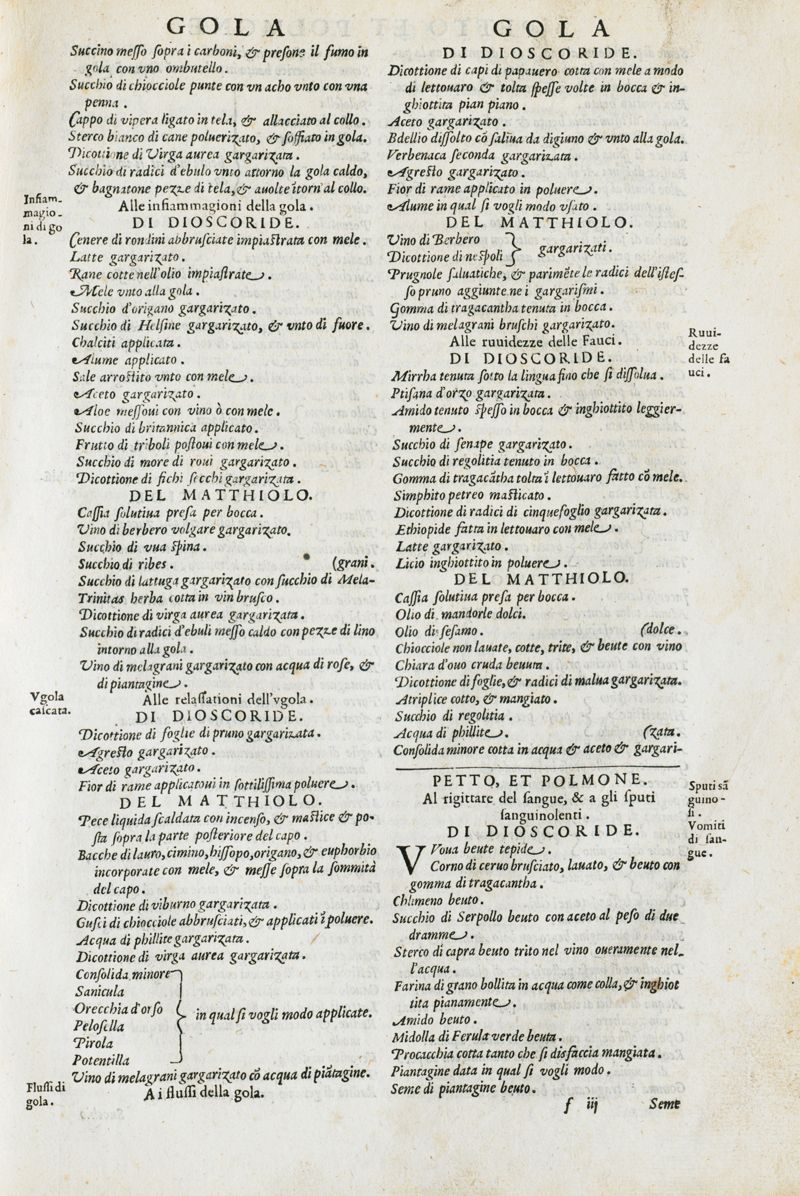 GOLA
Succino messo sopra i carboni, & presone il fumo in
gola con vno ombutello.
Succhio di chiocciole punte con vn acho vnto con vna
penna.
Cappo di vipera ligato in tela, & allacciato al collo.
Sterco bianco di cane poluerizato, & soffiato in gola.
Dicottione di Virga aurea gargarizata.
Succhio di radici d'ebulo vnto attorno la gola caldo,
& bagnatone pezze di tela, & auolte itorn'al collo.
Infiam-
magio-
ni di go
la.
Alle infiammagioni della gola.
DI DIOSCORIDE.
Cenere di rondini abbrusciate impiastrata con mele.
Latte gargarizato.
Rane cotte nell'olio impiastrate.
Mele vnto alla gola.
Succhio d'origano gargarizato.
Succhio di Helsine gargarizato, & vnto di fuore.
Chalciti applicata.
Alume applicato.
Sale arrostito vnto con mele.
Aceto gargarizato.
Aloe messoui con vino ò con mele.
Succhio di britannica applicato.
Frutto di triboli postoui con mele.
Succhio di more di roui gargarizato.
Dicottione di fichi secchi gargarizata.
DEL MATTHIOLO.
Cassia solutiua presa per bocca.
Vino di berbero volgare gargarizato.
Succhio di vua spina.
Succhio di ribes. (grani.
Succhio di lattuga gargarizato con succhio di Mela-
Trinitas herba cotta in vin brusco.
Dicottione di virga aurea gargarizata.
Succhio di radici d'ebuli messo caldo con pezze di lino
intorno alla gola.
Vino di melagrani gargarizato con acqua di rose, &
di piantagine.
Vgola
calcata.
Alle relassationi dell'vgola.
DI DIOSCORIDE.
Dicottione di foglie di pruno gargarizata.
Agresto gargarizato.
Aceto gargarizato.
Fior di rame applicatoui in sottilissima poluere.
DEL MATTHIOLO.
Pece liquida scaldata con incenso, & mastice & po-
sta sopra la parte posteriore del capo.
Bacche di lauro, cimino, hissopo, origano, & euphorbio
incorporate con mele, & messe sopra la sommità
del capo.
Dicottione di viburno gargarizata.
Gusci di chiocciole abbrusciati, & applicati ĩ poluere.
Acqua di phillite gargarizata.
Dicottione di virga aurea gargarizata.
Consolida minore
Sanicula
Orecchia d'orso
Pelosella
Pirola
Potentilla
in qual si vogli modo applicate.
Vino di melagrani gargarizato cõ acqua di piãtagine.
Flussi di
gola.
Ai flussi della gola.
GOLA
DI DIOSCORIDE.
Dicottione di capi di papauero cotta con mele a modo
di lettouaro & tolta spesse volte in bocca & in-
ghiottita pian piano.
Aceto gargarizato.
Bdellio dissolto cõ saliua da digiuno & vnto alla gola.
Verbenaca seconda gargarizata.
Agresto gargarizato.
Fior di rame applicato in poluere.
Alume in qual si vogli modo vsato.
DEL MATTHIOLO.
Vino di Berbero
Dicottione di nespoli
gargarizati.
Prugnole saluatiche, & parimẽte le radici dell'istes-
so pruno aggiunte ne i gargarismi.
Gomma di tragacantha tenuta in bocca.
Vino di melagrani bruschi gargarizato.
Ruui-
dezze
delle fa
uci.
Alle ruuidezze delle Fauci.
DI DIOSCORIDE.
Mirrha tenuta sotto la lingua fino che si dissolua.
Ptisana d'orzo gargarizata.
Amido tenuto spesso in bocca & inghiottito leggier-
mente.
Succhio di senape gargarizato.
Succhio di regolitia tenuto in bocca.
Gomma di tragacãtha tolta ĩ lettouaro fatto cõ mele.
Simphito petreo masticato.
Dicottione di radici di cinquefoglio gargarizata.
Ethiopide fatta in lettouaro con mele.
Latte gargarizato.
Licio inghiottito in poluere.
DEL MATTHIOLO.
Cassia solutiua presa per bocca.
Olio di mandorle dolci.
Olio di sesamo. (dolce.
Chiocciole non lauate, cotte, trite, & beute con vino
Chiara d'ouo cruda beuuta.
Dicottione di foglie, & radici di malua gargarizata.
Atriplice cotto, & mangiato.
Succhio di regolitia.
Acqua di phillite. (zata.
Consolida minore cotta in acqua & aceto & gargari-
PETTO, ET POLMONE.
Sputi sã
guino-
si.
Vomiti
di san-
gue.
Al rigittare del sangue, & a gli sputi
sanguinolenti.
DI DIOSCORIDE.
VVoua beute tepide.
Corno di ceruo brusciato, lauato, & beuto con
gomma di tragacantha.
Chlimeno beuto.
Succhio di Serpollo beuto con aceto al peso di due
dramme.
Sterco di capra beuto trito nel vino oueramente nel-
l'acqua.
Farina di grano bollita in acqua come colla, & inghiot
tita pianamente.
Amido beuto.
Midolla di Ferula verde beuta.
Procacchia cotta tanto che si disfaccia mangiata.
Piantagine data in qual si vogli modo.
Seme di piantagine beuto.
f iij Seme